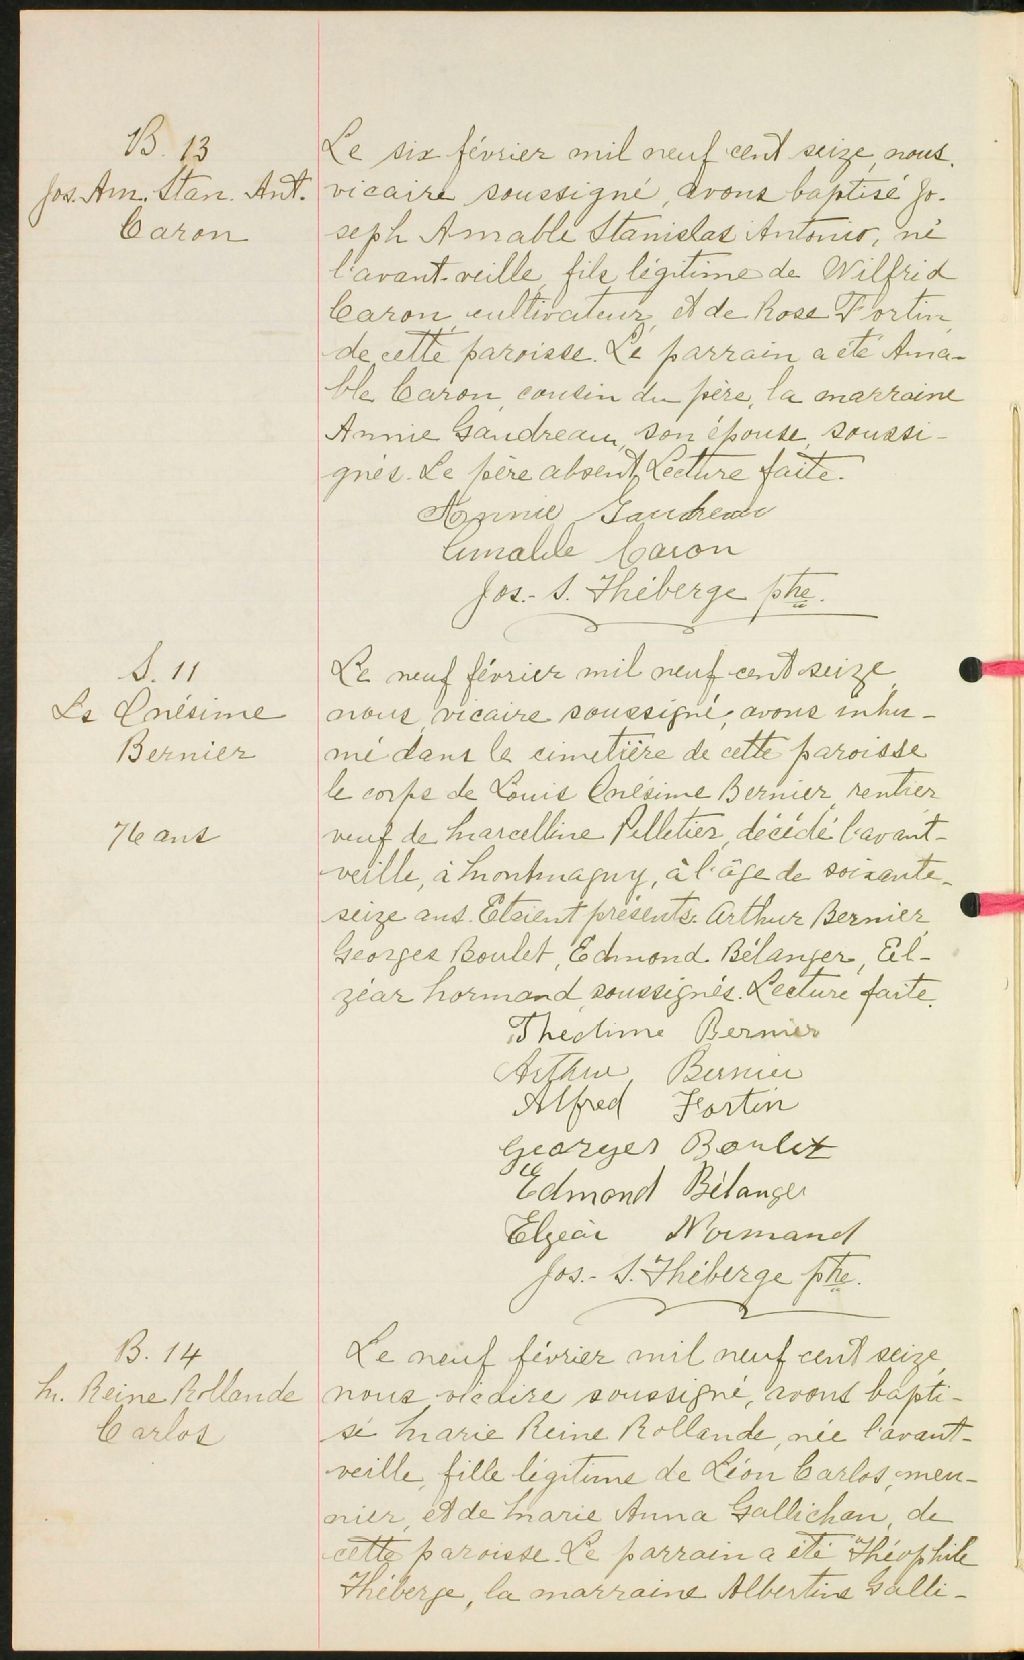 B. 13
Jos. Am. Stan. Ant.
Caron
Le six février mil neuf cent seize, nous,
vicaire soussigné, avons baptisé Jo-
seph Amable Stanislas Antonio, né
l'avant-veille, fils légitime de Wilfrid
Caron, cultivateur, et de Rose Fortin,
de cette paroisse. Le parrain a été Ama-
ble Caron, cousin du père, la marraine
Annie Gaudreau, son épouse, soussi-
gnés. Le père absent. Lecture faite.
Annie Gaudreau
Amable Caron
Jos.- S. Théberge ptre.
S. 11
Ls Onésime
Bernier
76 ans
Le neuf février mil neuf cent seize,
nous, vicaire soussigné, avons inhu-
mé dans le cimetière de cette paroisse
le corps de Louis Onésime Bernier, rentier,
veuf de Marcelline Pelletier, décédé l'avant-
veille, à Montmagny, à l'âge de soixante-
seize ans. Etaient présents: Arthur Bernier,
Georges Boulet, Edmond Bélanger, El-
zéar Normand, soussignés. Lecture faite.
Thectime Bernier
Arthur Bernier
Alfred Fortin
Georges Boulet
Edmond Bélanger
Elzéar Normand
Jos.- S. Théberge ptre.
B. 14
M. Reine Rollande
Carlos
Le neuf février mil neuf cent seize,
nous, vicaire soussigné, avons bapti-
sé Marie Reine Rollande, née l'avant-
veille, fille légitime de Léon Carlos, meu-
nier, et de Marie Anna Gallichan, de
cette paroisse. Le parrain a été Théophile
Théberge, la marraine Albertine Galli-